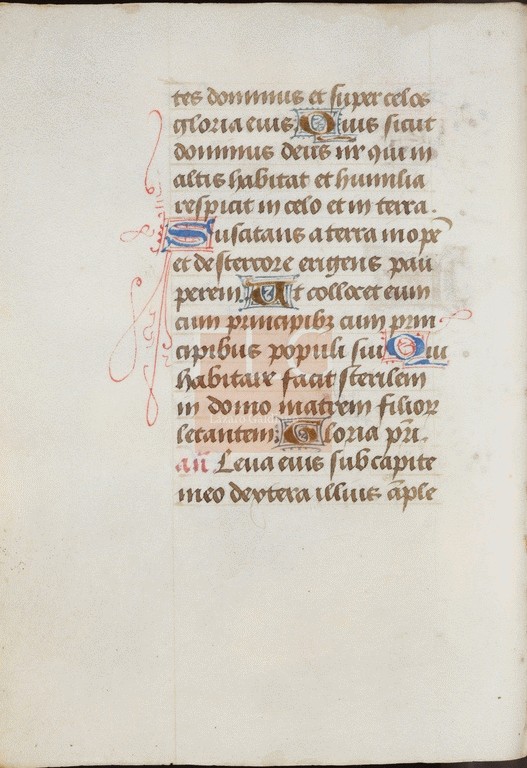 tes dominus et super celos
gloria eius Quis sicut
dominus deus nr qui in
altis habitat et humilia
respicit in celo et in terra.
Suscitans a terra inopē
et de stercore erigens pau
perem Ut collocet eum
cum principibꝫ cum prin
cipibus populi sui Qui
habitare facit sterilem
in domo matrem filioꝝ
letantem Gloria pr̄i.
an̄ Leua eius sub capite
meo dextera illius āple